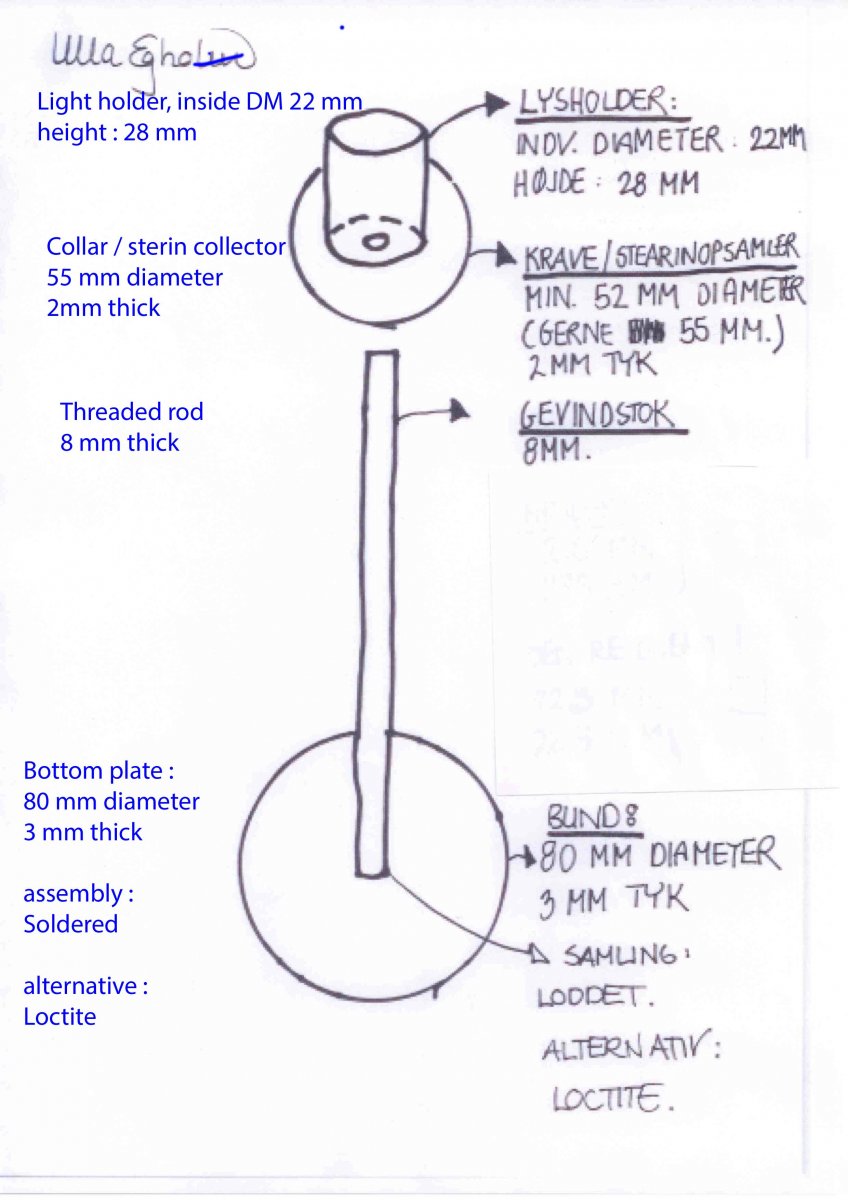 Ulla Egholm
Light holder, inside DM 22 mm
height : 28 mm
LYSHOLDER:
INDV. DIAMETER : 22MM
HØJDE : 28 MM
Collar / sterin collector
55 mm diameter
2mm thick
KRAVE/STEARINOPSAMLER
MIN. 52 MM DIAMETER
(GERNE 55 MM.)
2MM TYK
Threaded rod
8 mm thick
GEVINDSTOK
8MM.
Bottom plate :
80 mm diameter
3 mm thick
assembly :
Soldered
alternative :
Loctite
BUND:
80 MM DIAMETER
3 MM TYK
SAMLING:
LODDET.
ALTERNATIV:
LOCTITE.